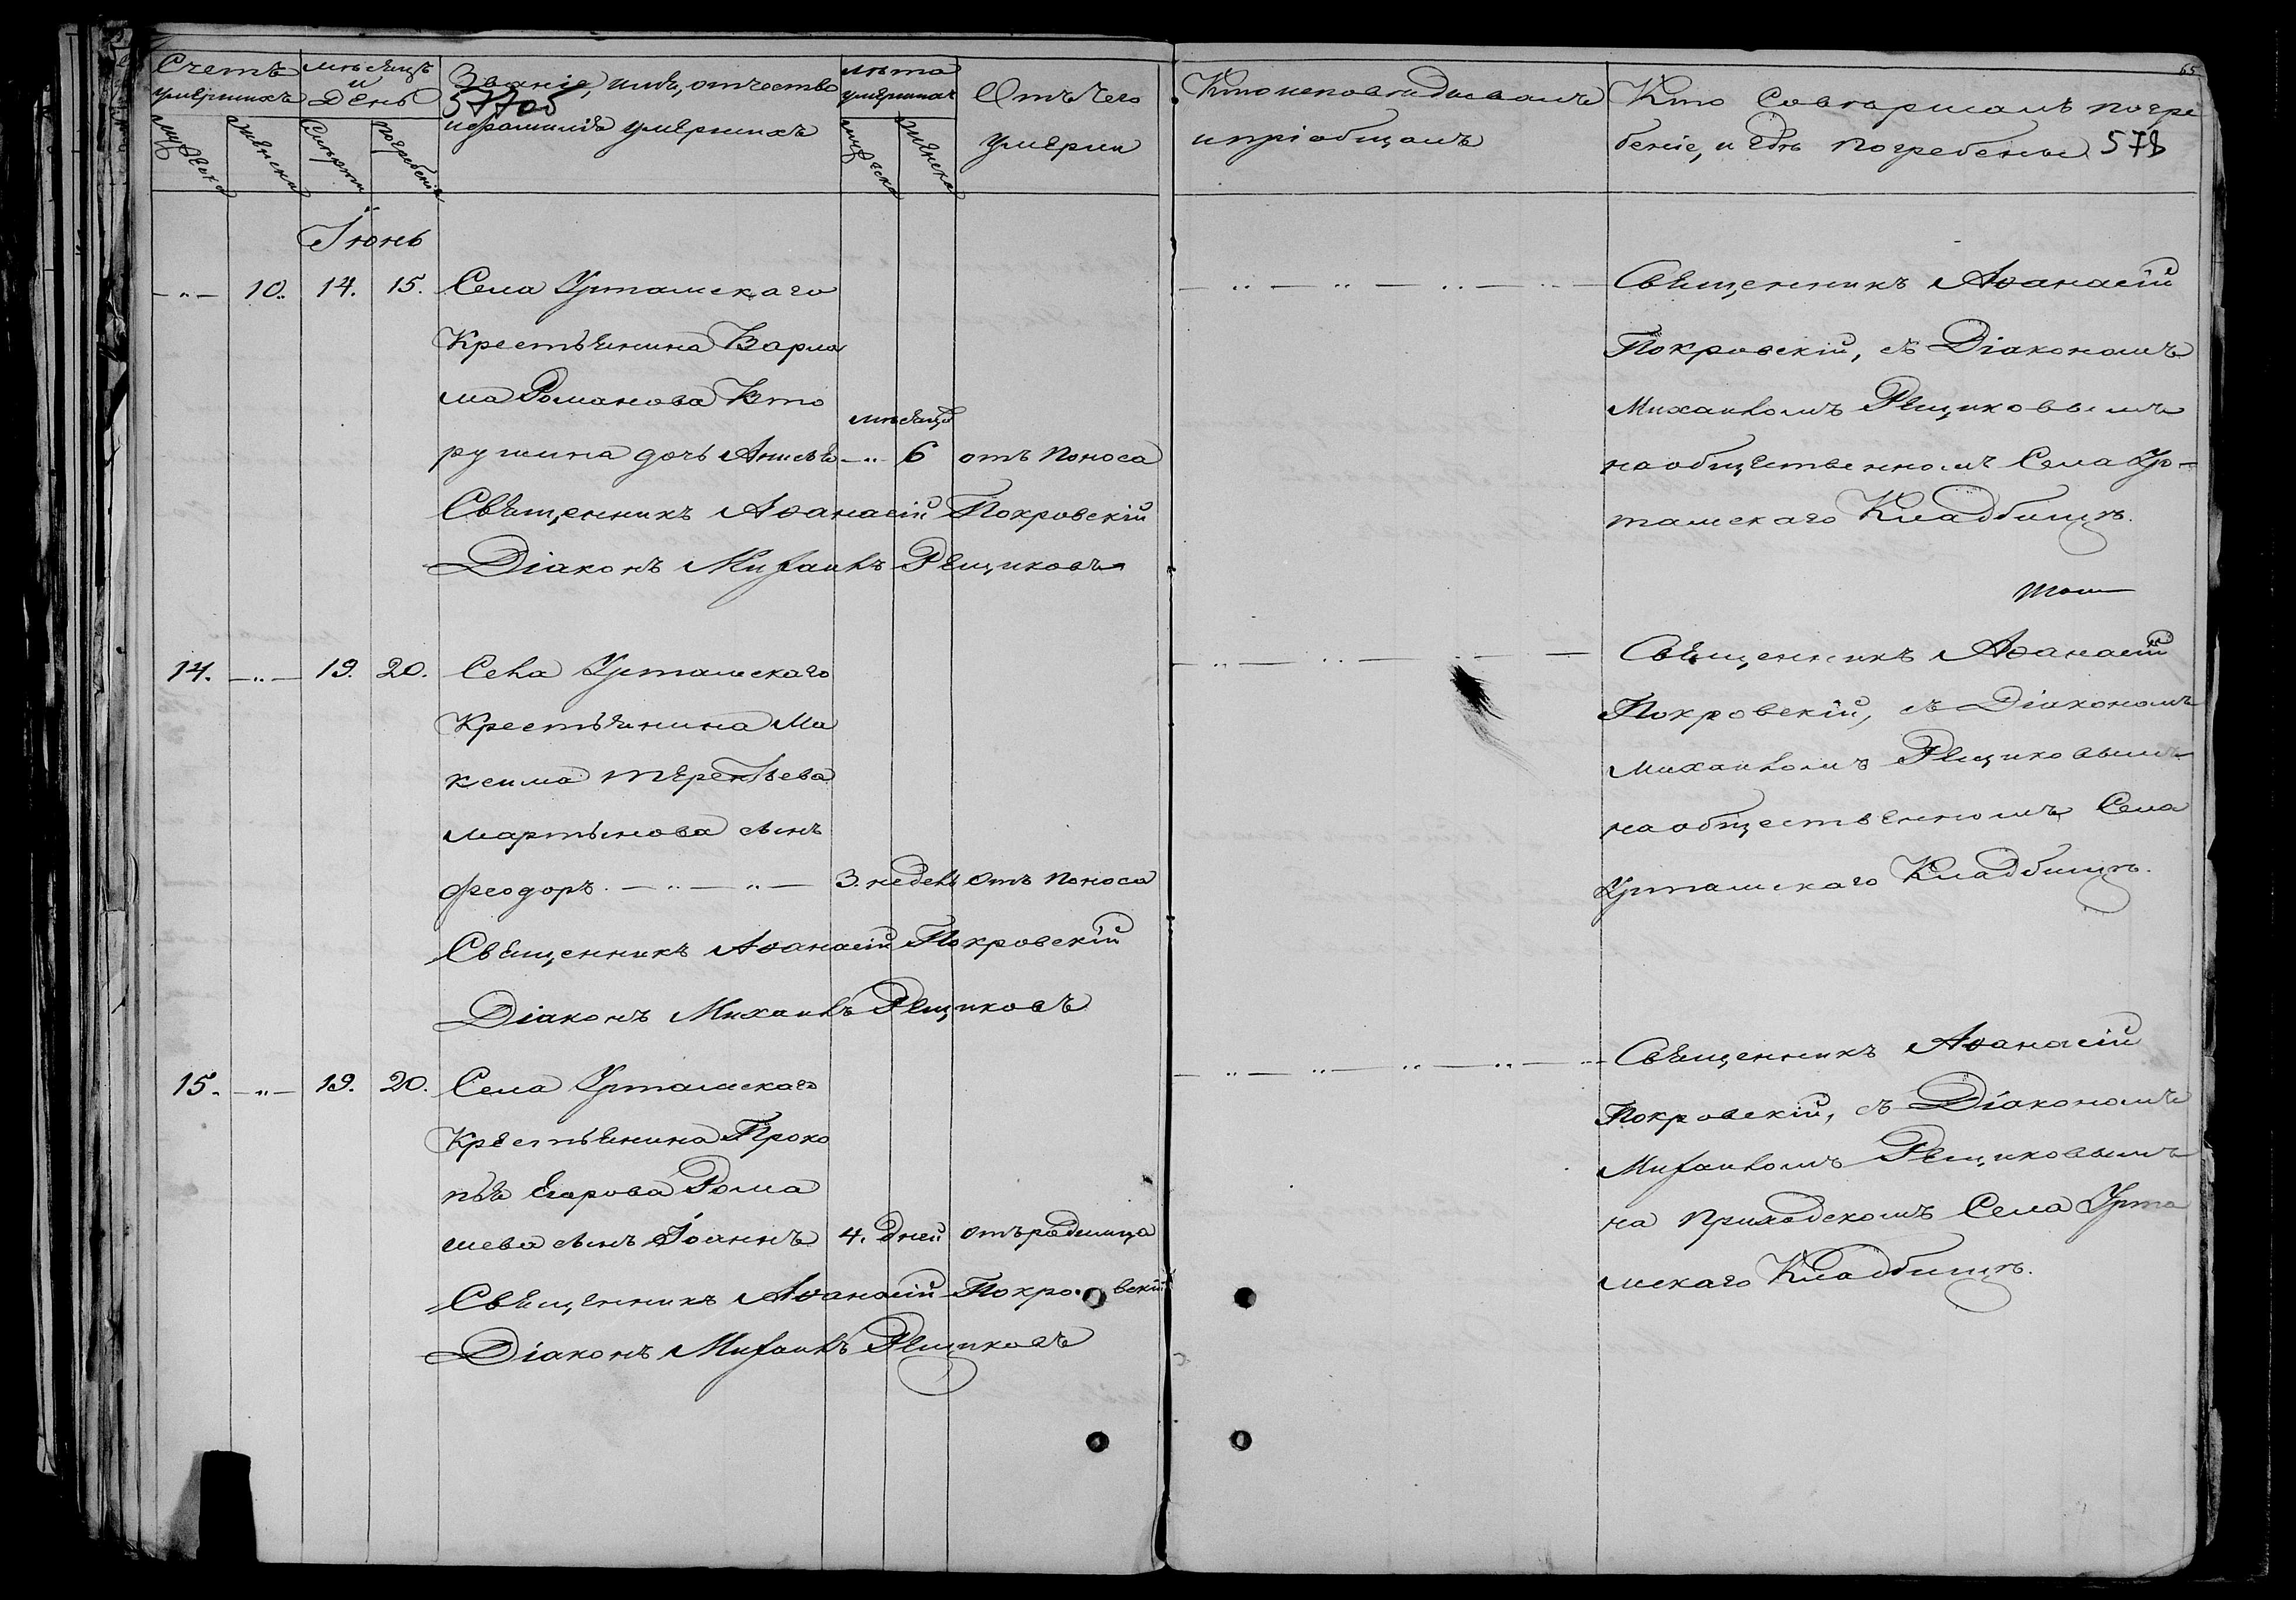 Счетъ умершихъ
Мѣсяцъ и День
Званіе, имя, отчество
577об
и фамилія умершихъ
лѣта умершихъ
Отъ чего умерли
Кто исповѣдывалъ
и пріобщалъ
65
Кто Совершалъ погре
беніе, и гдѣ погребены 578
мужеска
женска
Смерти
погребенія
мужеска
женска
Іюнь
-"- 10. 14. 15. Села Урташскаго
Крестьянина Варла
ма Романова Вто
мѣсяцъ
рушина дочь Анисья -"- 6 отъ поноса
Священникъ Аѳанасій Покровскій
Діаконъ Михаилъ Рещиковъ
Священникъ Аѳанасій
Покровскій, съ Діакономъ
Михаиломъ Рещиковымъ
на общественномъ Села Ур-
ташскаго Кладбищѣ.
таш
14. -"- 19. 20. Села Урташскаго
Крестьянина Ма
ксима Терентьева
Мартынова сынъ
Феодоръ. -"-"- 3. недель отъ поноса
Священникъ Аѳанасій Покровскій
Діаконъ Михаилъ Рещиковъ
Священникъ Аѳанасій
Покровскій, съ Діакономъ
Михаиломъ Рещиковымъ
на общественномъ Села
Урташскаго Кладбищѣ.
15. -"- 19. 20. Села Урташскаго
Крестьянина Проко
пья Егорова Рома
шева сынъ Іоаннъ 4. дней отъ родимца
Священникъ Аѳанасій Покровскій
Діаконъ Михаилъ Рещиковъ
Священникъ Аѳанасій
Покровскій, съ Діакономъ
Михаиломъ Рещиковымъ
на приходскомъ Села Урта
мскаго Кладбищѣ.